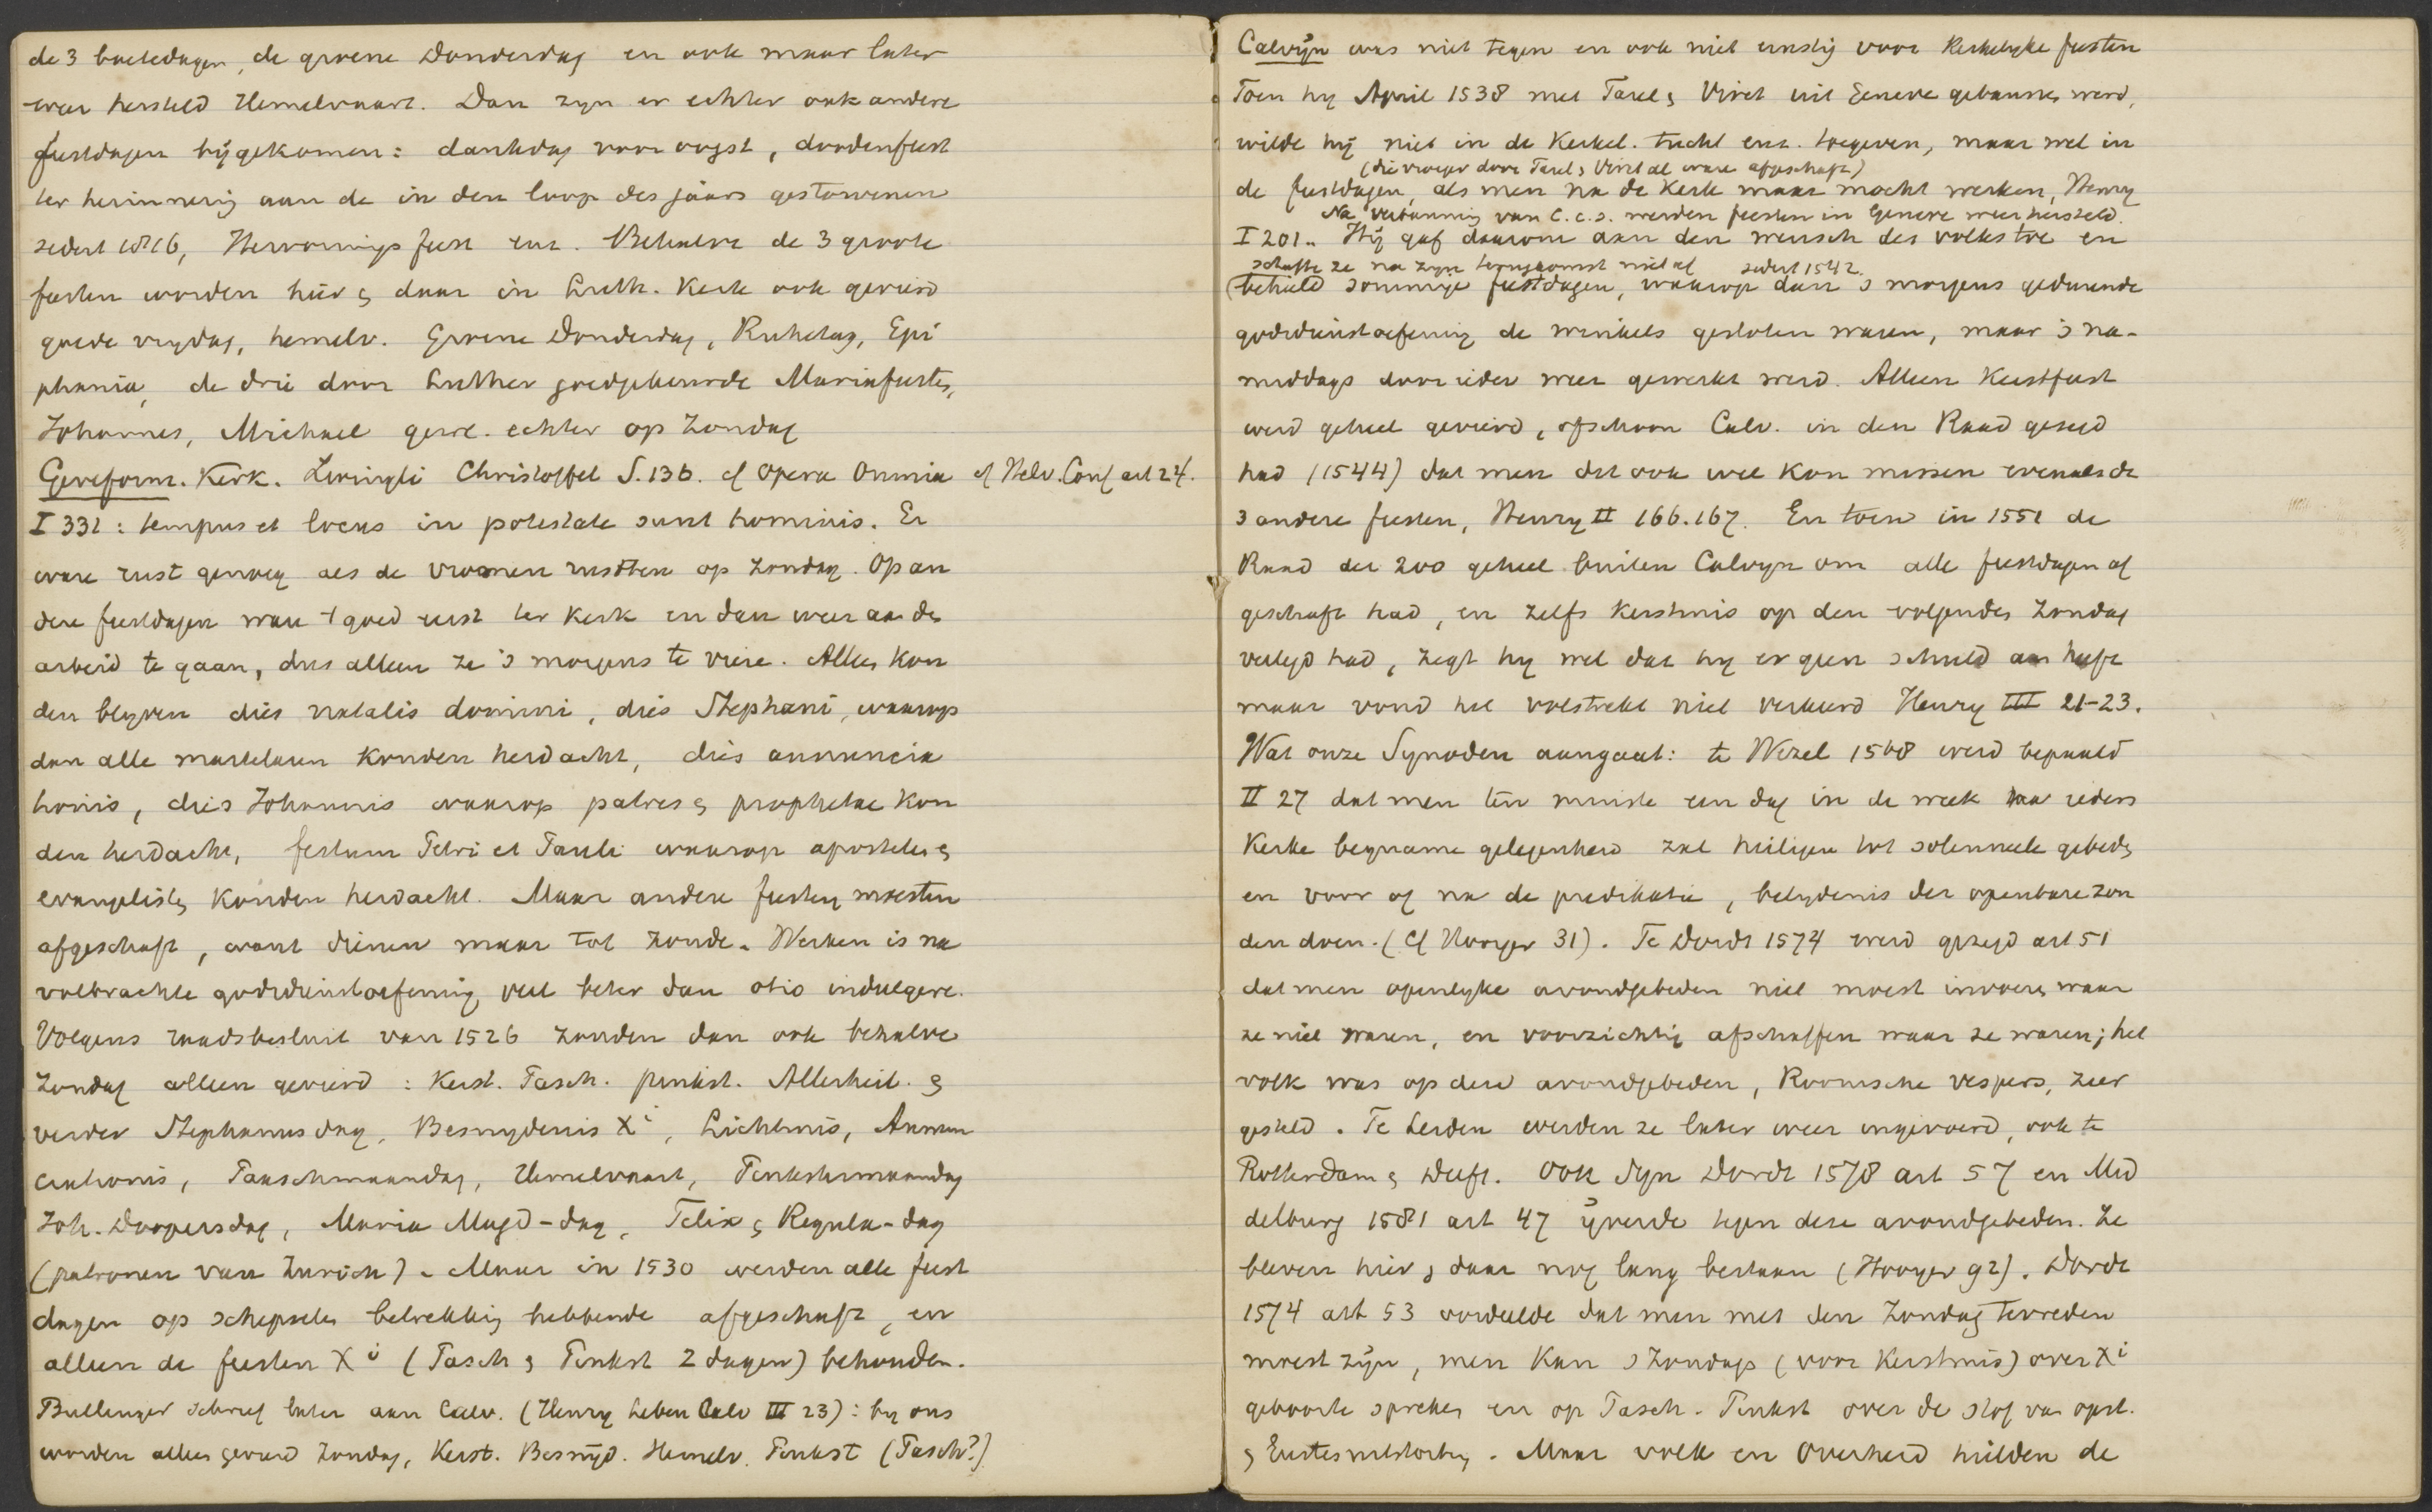 de 3 boetedagen, de groene Donderdag en ook maar later
weer hersteld Hemelvaart. Dan zyn er echter ook andere
feestdagen bijgekomen: dankdag voor oogst, doodenfeest
ter herinnering aan de in den loop des jaars gestorvenen
sedert 1816, Hervormingsfeest enz. Behalve de 3 groote
feesten worden hier & daar in Luth. Kerk ook gevierd
goede vrydag, hemelv. Groene Donderdag, Ruhetag, Epi
phania, de drie door Luther goedgekeurde Mariafeesten,
Johannes, Michael gew. echter op Zondag
Gereform. Kerk. Zwingli Christoffel S. 136. cf Opera Omnia cf Helv. Conf art 24.
I 331: tempus et locus in potestate sunt hominis. Er
ware rust genoeg als de vromen rustten op Zondag. Op an
dere feestdagen was 't goed eerst ter kerk en dan weer aan den
arbeid te gaan, dus alleen ze 's morgens te viere. Alleen kon
den blyven dies natalis domini, dies Stephani, waarop
dan alle martelaren konden herdacht, dies annuncia
tionis, dies Johannis waarop patres & prophetae kon
den herdacht, festum Petri et Pauli waarop apostelen &
evangelisten konden herdacht. Maar andere feesten moesten
afgeschaft, want dienen maar tot zonde. Werken is na
volbrachte godsdienstoefening veel beter dan otio indulgere.
Volgens raadsbesluit van 1526 zouden dan ook behalve
Zondag alleen gevierd: Kerst. Pasch. pinkst. Allerheil. &
verder Stephanusdag, Besnydenis Xi, Lichtmis, Annun
ciationis, Paaschmaandag, Hemelvaart, Pinkstermaandag
Joh. Doopersdag, Maria Magd-dag, Felix & Regula-dag
(patronen van Zurich). Maar in 1530 werden alle feest
dagen op schepselen betrekking hebbende afgeschaft, en
alleen de feesten Xi (Pasch & Pinkst 2 dagen) behouden.
Bullinger schreef later aan Calv. (Henry Leben Calv III 23): by ons
worden alleen gevierd Zondag, Kerst. Besnijd. Hemelv. Pinkst (Pasch?)
Calvijn was niet tegen en ook niet ernstig voor Kerkelyke feesten
Toen hy April 1538 met Farel & Viret uit Geneve gebannen werd,
wilde hij niet in de Kerkel. tucht enz. toegeven, maar wel in
(die vroeger door Farel & Viret al ware afgeschaft)
de feestdagen, als men na de Kerk maar mocht werken, Henry
Na verbanning van C. c.s. werden feesten in Geneve weer hersteld.
I 201. Hij gaf daarom aan den wensch des volks toe en
schafte ze na zyn terugkomst niet af sedert 1542.
(behield sommige feestdagen, waarop dan 's morgens gedurende
godsdienstoefening de winkels gesloten waren, maar 's na-
middags door ieder weer gewerkt werd. Alleen Kerstfeest
werd geheel gevierd, ofschoon Calv. in den Raad gezegd
had (1544) dat men dit ook wel kon missen evenals de
3 andere feesten, Henry II 166.167. En toen in 1551 de
Raad der 200 geheel buiten Calvyn om alle feestdagen af
geschaft had, en zelfs Kerstmis op den volgenden Zondag
verlegd had, zegt hy wel dat hy er geen schuld aan heeft
maar vond het volstrekt niet verkeerd Henry III 21-23.
Wat onze Synoden aangaat: te Wezel 1568 werd bepaald
II 27 dat men ten minste een dag in de week naar ieders
Kerke beqname gelegenheid zal heiligen tot solenneele gebeden
en voor of na de predikatie, belydenis der openbare zon
den doen. (Cf Hooyer 31). Te Dordt 1574 werd gezegd art 51
dat men openlyke avondgebeden niet moest invoeren waar
ze niet waren, en voorzichtig afschaffen waar ze waren; het
volk was op deze avondgebeden, Roomsche vespers, zeer
gesteld. Te Leiden werden ze later weer ingevoerd, ook te
Rotterdam & Delft. Ook Syn Dordt 1578 art 57 en Mid
delburg 1581 art 47 ijverde tegen deze avondgebeden. Ze
bleven hier & daar nog lang bestaan (Hooyer 92). Dordt
1574 art 53 oordeelde dat men met den Zondag tevreden
moest zijn, men kan 's Zondags (voor Kerstmis) over Xi
geboorte spreken en op Pasch. Pinkst over de stof van opst.
& Geestesuitstorting. Maar volk en Overheid hielden de